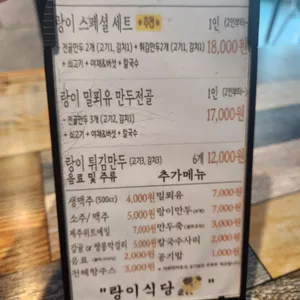 랑이 스페셜 세트 추천 1인 (2인부터~)
전골만두 2개 (고기1, 김치1) + 튀김만두2개 (고기1, 김치1) 18,000원
+ 쇠고기 + 야채&버섯 + 칼국수
랑이 밀푀유 만두전골 1인 (2인부터~)
전골만두 3개 (고기2, 김치1) 17,000원
+ 쇠고기 + 야채&버섯 + 칼국수
랑이 튀김만두 (고기3, 김치3) 6개 12,000원
음료 및 주류 추가메뉴
생맥주 (500cc) 4,000원 밀푀유 7,000원
소주/맥주 5,000원 랑이만두 7,000원
제주위트에일 7,000원 만두죽 3,000원
감귤 or 땅콩막걸리 5,000원 칼국수사리 2,000원
음료 2,000원 공기밥 1,000원
천혜향주스 3,000원
"랑이식당"